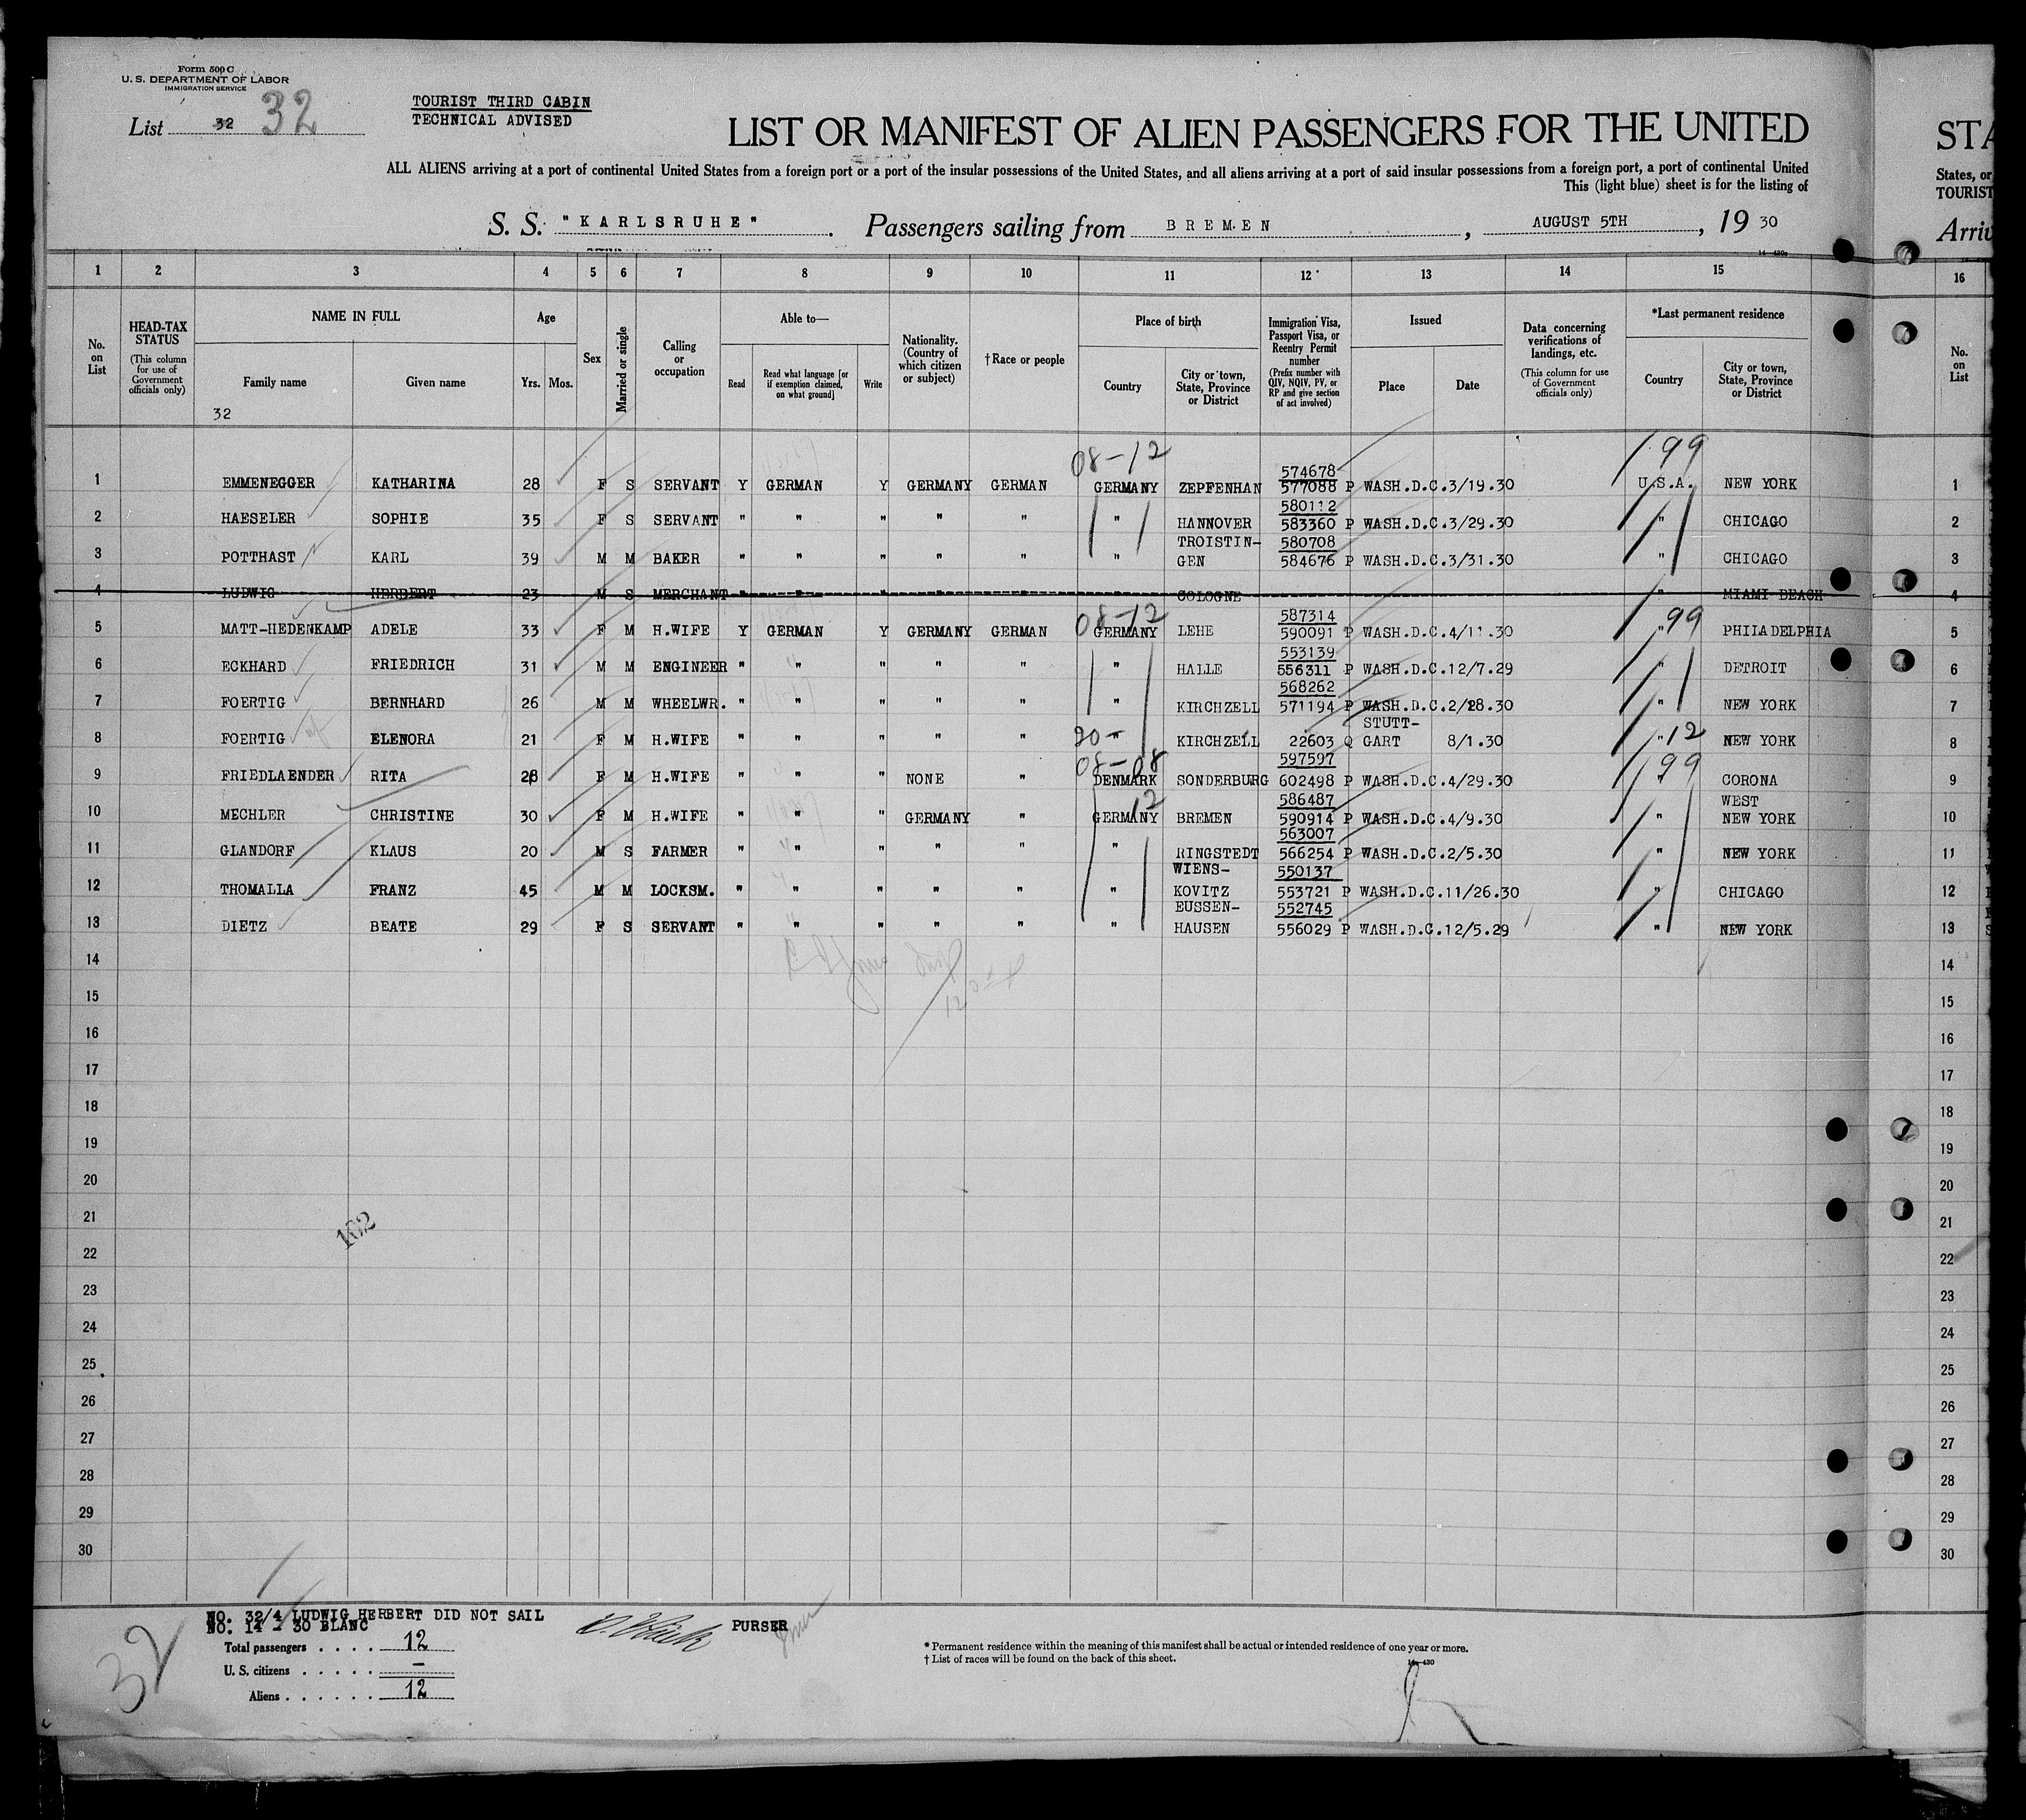 Form 500 C
U. S. DEPARTMENT OF LABOR
IMMIGRATION SERVICE
List 32 32
TOURIST THIRD CABIN
TECHNICAL ADVISED
LIST OR MANIFEST OF ALIEN PASSENGERS FOR THE UNITED
STA
ALL ALIENS arriving at a port of continental United States from a foreign port or a port of the insular possessions of the United States, and all aliens arriving at a port of said insular possessions from a foreign port, a port of continental United
States, or
This (light blue) sheet is for the listing of
TOURIST
S. S. "KARLSRUHE". Passengers sailing from BREMEN, AUGUST 5TH, 19 30
Arriv
1 2 3 4 5 6 7 8 9 10 11 12 13 14 15 16
No. on List
HEAD-TAX STATUS (This column for use of Government officials only)
NAME IN FULL
Family name
Given name
32
Age
Yrs. Mos.
Sex
Married or single
Calling or occupation
Able to—
Read
Read what language [or if exemption claimed, on what ground]
Write
Nationality. (Country of which citizen or subject)
†Race or people
Place of birth
Country
City or town, State, Province or District
Immigration Visa, Passport Visa, or Reentry Permit number (Prefix number with QIV, NQIV, PV, or RP and give section of act involved)
Issued
Place
Date
Data concerning verifications of landings, etc. (This column for use of Government officials only)
*Last permanent residence
Country
City or town, State, Province or District
No. on List
08-12 199
574678
1 EMMENEGGER KATHARINA 28 F S SERVANT Y GERMAN Y GERMANY GERMAN GERMANY ZEPFENHAN 577088 P WASH.D.C. 3/19.30 U.S.A. NEW YORK 1
580112
2 HAESELER SOPHIE 35 F S SERVANT " " " " " " HANNOVER 583360 P WASH.D.C. 3/29.30 " CHICAGO 2
TROISTIN- 580708
3 POTTHAST KARL 39 M M BAKER " " " " " " GEN 584676 P WASH.D.C. 3/31.30 " CHICAGO 3
4 LUDWIG HERBERT 23 M S MERCHANT " COLOGNE " MIAMI BEACH 4
08-12 587314 99
5 MATT-HEDENKAMP ADELE 33 F M H.WIFE Y GERMAN Y GERMANY GERMAN GERMANY LEHE 590091 P WASH.D.C. 4/11.30 " PHILADELPHIA 5
553139
6 ECKHARD FRIEDRICH 31 M M ENGINEER " " " " " " HALLE 556311 P WASH.D.C. 12/7.29 " DETROIT 6
568262
7 FOERTIG BERNHARD 26 M M WHEELWR. " " " " " " KIRCHZELL 571194 P WASH.D.C. 2/28.30 " NEW YORK 7
20- STUTT- 12
8 FOERTIG ELENORA 21 F M H.WIFE " " " " " " KIRCHZELL 22603 Q GART 8/1.30 " NEW YORK 8
08-08 597597 99
9 FRIEDLAENDER RITA 28 F M H.WIFE " " " NONE " DENMARK SONDERBURG 602498 P WASH.D.C. 4/29.30 " CORONA 9
12 586487 WEST
10 MECHLER CHRISTINE 30 F M H.WIFE " " " GERMANY " GERMANY BREMEN 590914 P WASH.D.C. 4/9.30 " NEW YORK 10
563007
11 GLANDORF KLAUS 20 M S FARMER " " " " " " RINGSTEDT 566254 P WASH.D.C. 2/5.30 " NEW YORK 11
WIENS- 550137
12 THOMALLA FRANZ 45 M M LOCKSM. " " " " " " KOVITZ 553721 P WASH.D.C. 11/26.30 " CHICAGO 12
EUSSEN- 552745
13 DIETZ BEATE 29 F S SERVANT " " " " " " HAUSEN 556029 P WASH.D.C. 12/5.29 " NEW YORK 13
14 14
15 15
16 16
17 17
18 18
19 19
20 20
21 21
22 22
23 23
24 24
25 25
26 26
27 27
28 28
29 29
30 30
NO. 32/4 LUDWIG HERBERT DID NOT SAIL
NO. 14 - 30 BLANC
PURSER
Total passengers . . . . 12
U. S. citizens . . . . . —
Aliens . . . . . . 12
32
* Permanent residence within the meaning of this manifest shall be actual or intended residence of one year or more.
† List of races will be found on the back of this sheet.
14—430